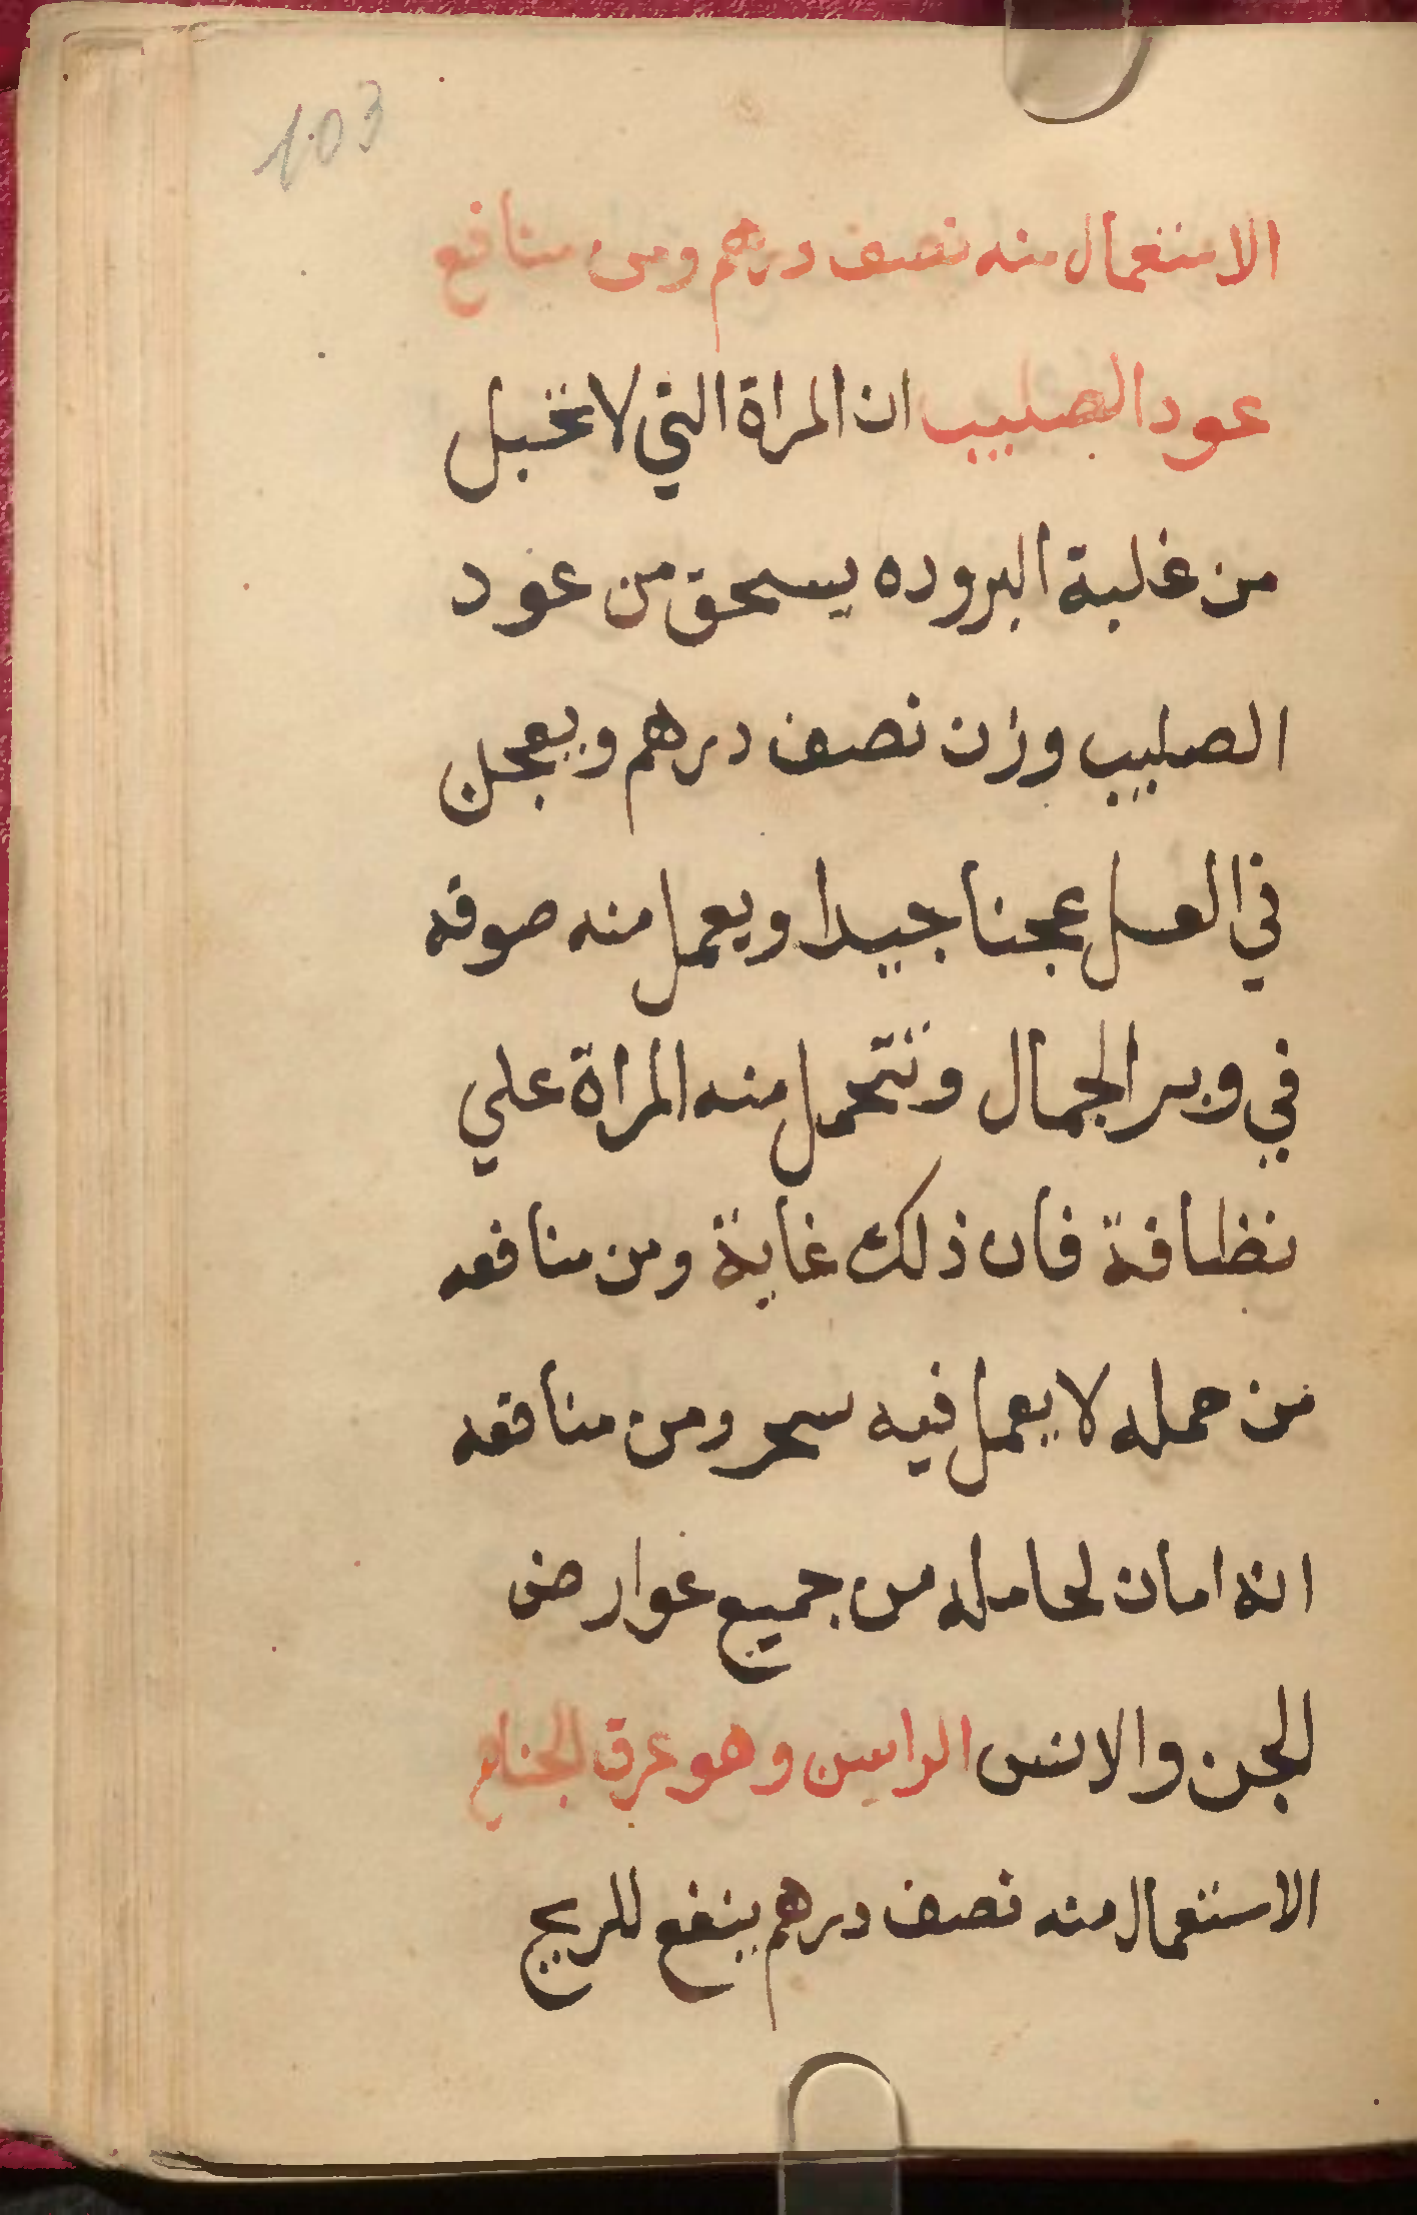 103
الاستعمال منه نصف درهم ومن منافع
عود الصليب ان المراة التي لا تحبل
من غلبة البروده يسحق من عود
الصليب وزن نصف درهم ويعجن
في العسل عجنا جيدا ويعمل منه صوفه
في وبر الجمال وتتحمل منه المراة علي
نظافة فان ذلك غاية ومن منافعه
من حمله لا يعمل فيه سحر ومن منافعه
انه امان لحامله من جميع عوارض
الجن والانس الراسن وهو عرق الجناح
الاستعمال منه نصف درهم ينفع للريح